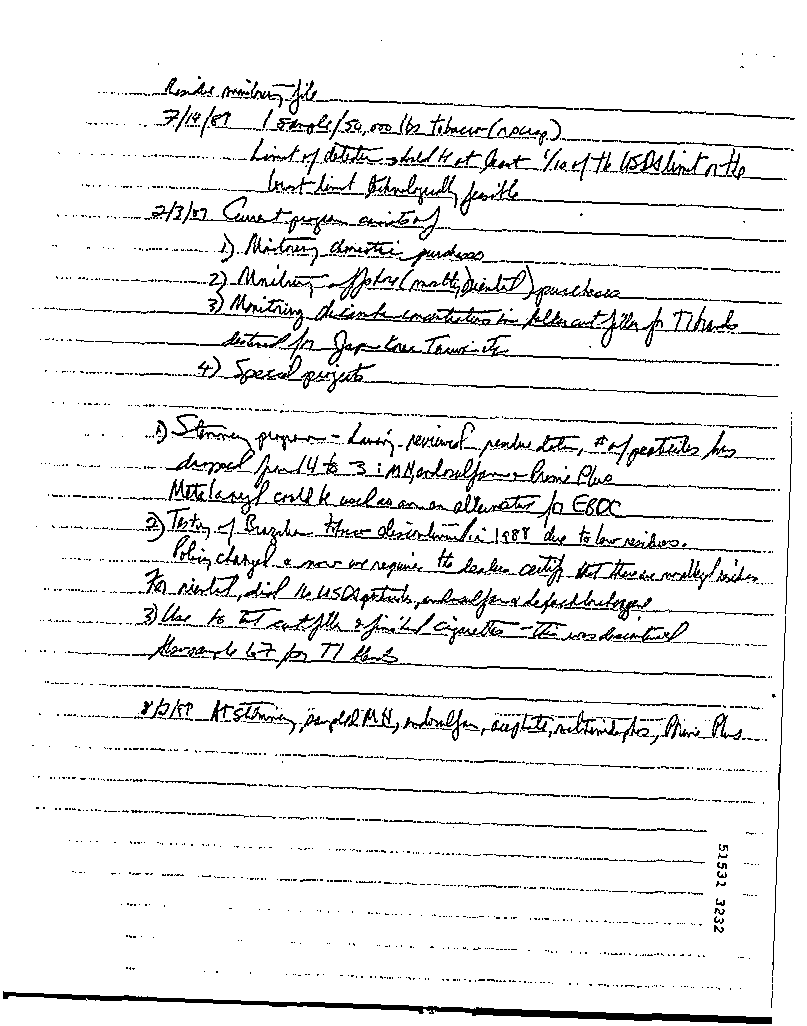 Residue monitoring file
7/14/89 1 sample/50,000 lbs tobacco (
Limit of detection should be at least 1/10 of the USDA limit or the
lowest limit technologically feasible
2/3/89 Current program consists of
1) Monitoring domestic purchases
2) Monitoring offshore (mostly oriental) purchases
3) Monitoring concentrations in cut filler for TI brands
destined for Japan Korea Taiwan etc
4) Special projects
1) Stemmery program - having reviewed residue data, # of pesticides has
dropped from 14 to 3: MH, endosulfan & Prime Plus
Metalaxyl could be used as an alternative for EBDC
2) Testing of Brazilian tobacco discontinued in 1988 due to low residues.
Policy changed & now we require the dealers certify that there are residues
For oriental, did 16 USDA pesticides, endosulfan &
3) Use to test cut filler & finished cigarettes - this was discontinued
Now sample 67 for TI brands
8/3/89 At stemmery, sampled MH, endosulfan, acephate, methamidophos, Prime Plus
51531 3232